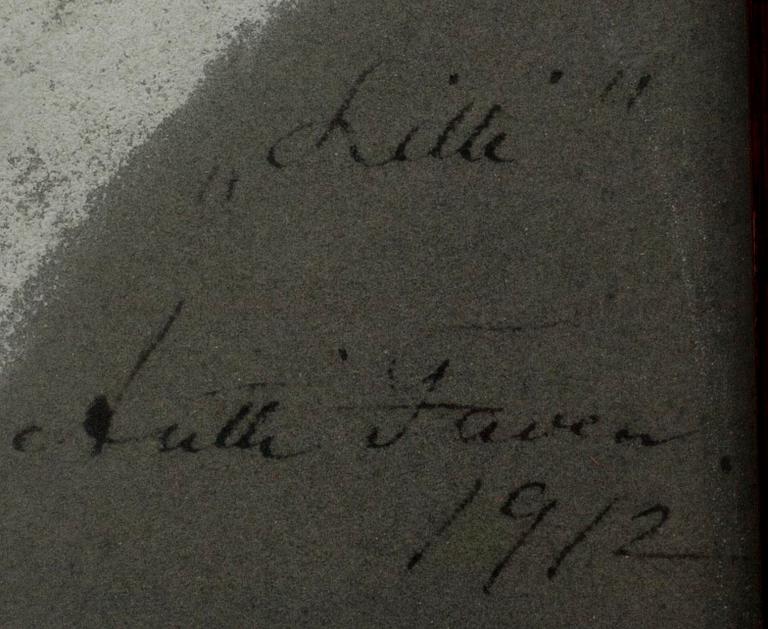 „Lilli"
Antti Faven.
1912